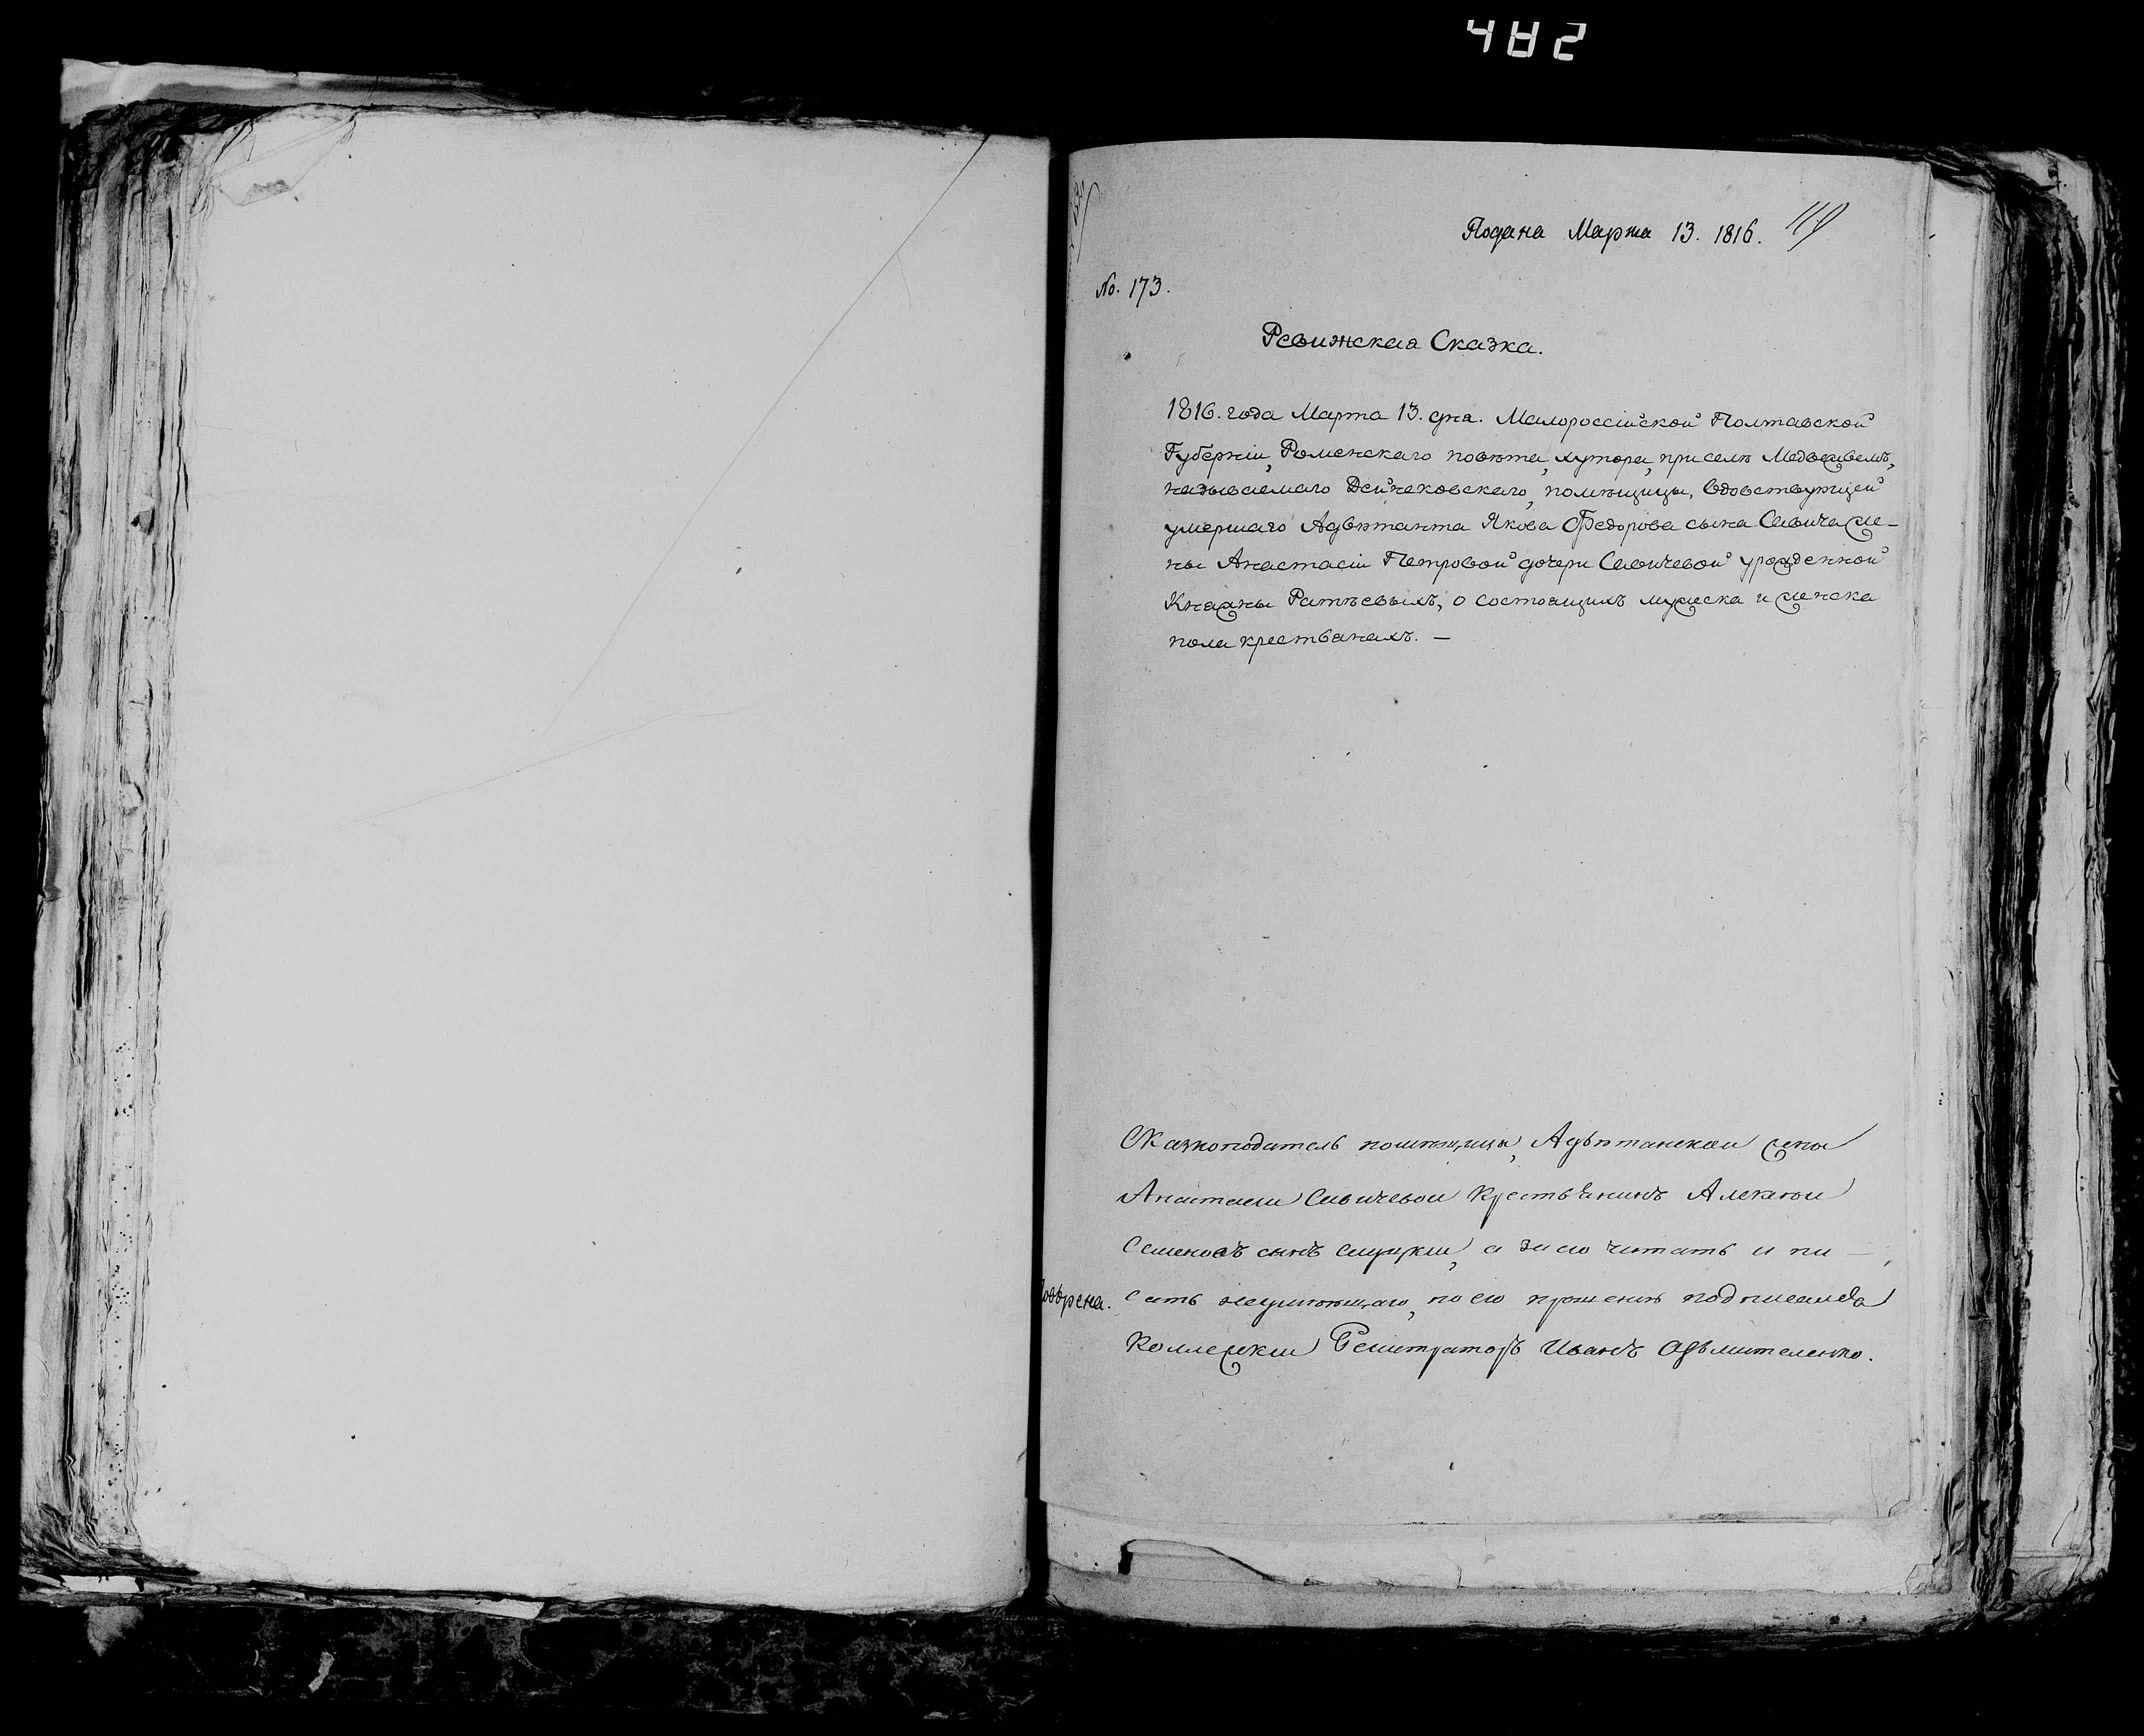 482
Подана Марта 13. 1816. 119
No. 173.
Ревижская Сказка.
1816. года Марта 13. дня. Малороссійской Полтавской
Губерніи, Роменскаго повѣта, хутора, при селѣ Медвежьемъ,
называемаго Дейнековскаго, помѣщицы, вдовствующей
умершаго Адъютанта Якова Федорова сына Савича же-
ны Анастасіи Петровой дочери Савичевой урожденной
Княжны Ратѣевыхъ, о состоящихъ мужеска и женска
пола крестьянахъ. —
Сказкоподатель помѣщицы, Адъютанской жены
Анастасіи Савичевой Крестьянинъ Алексѣй
Семеновъ сынъ, а за его читать и пи-
сать неумѣющаго, по его прошенію подписался
Коллежкій Регистраторъ Иванъ
овѣрена.